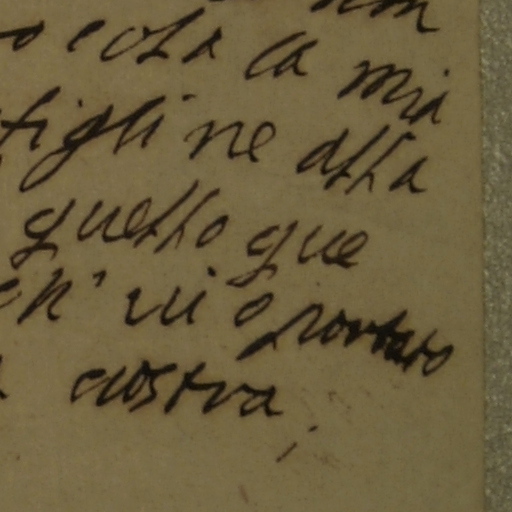 cosa la mia
figli ne alla
quello que
ch' vi o portato
vostra